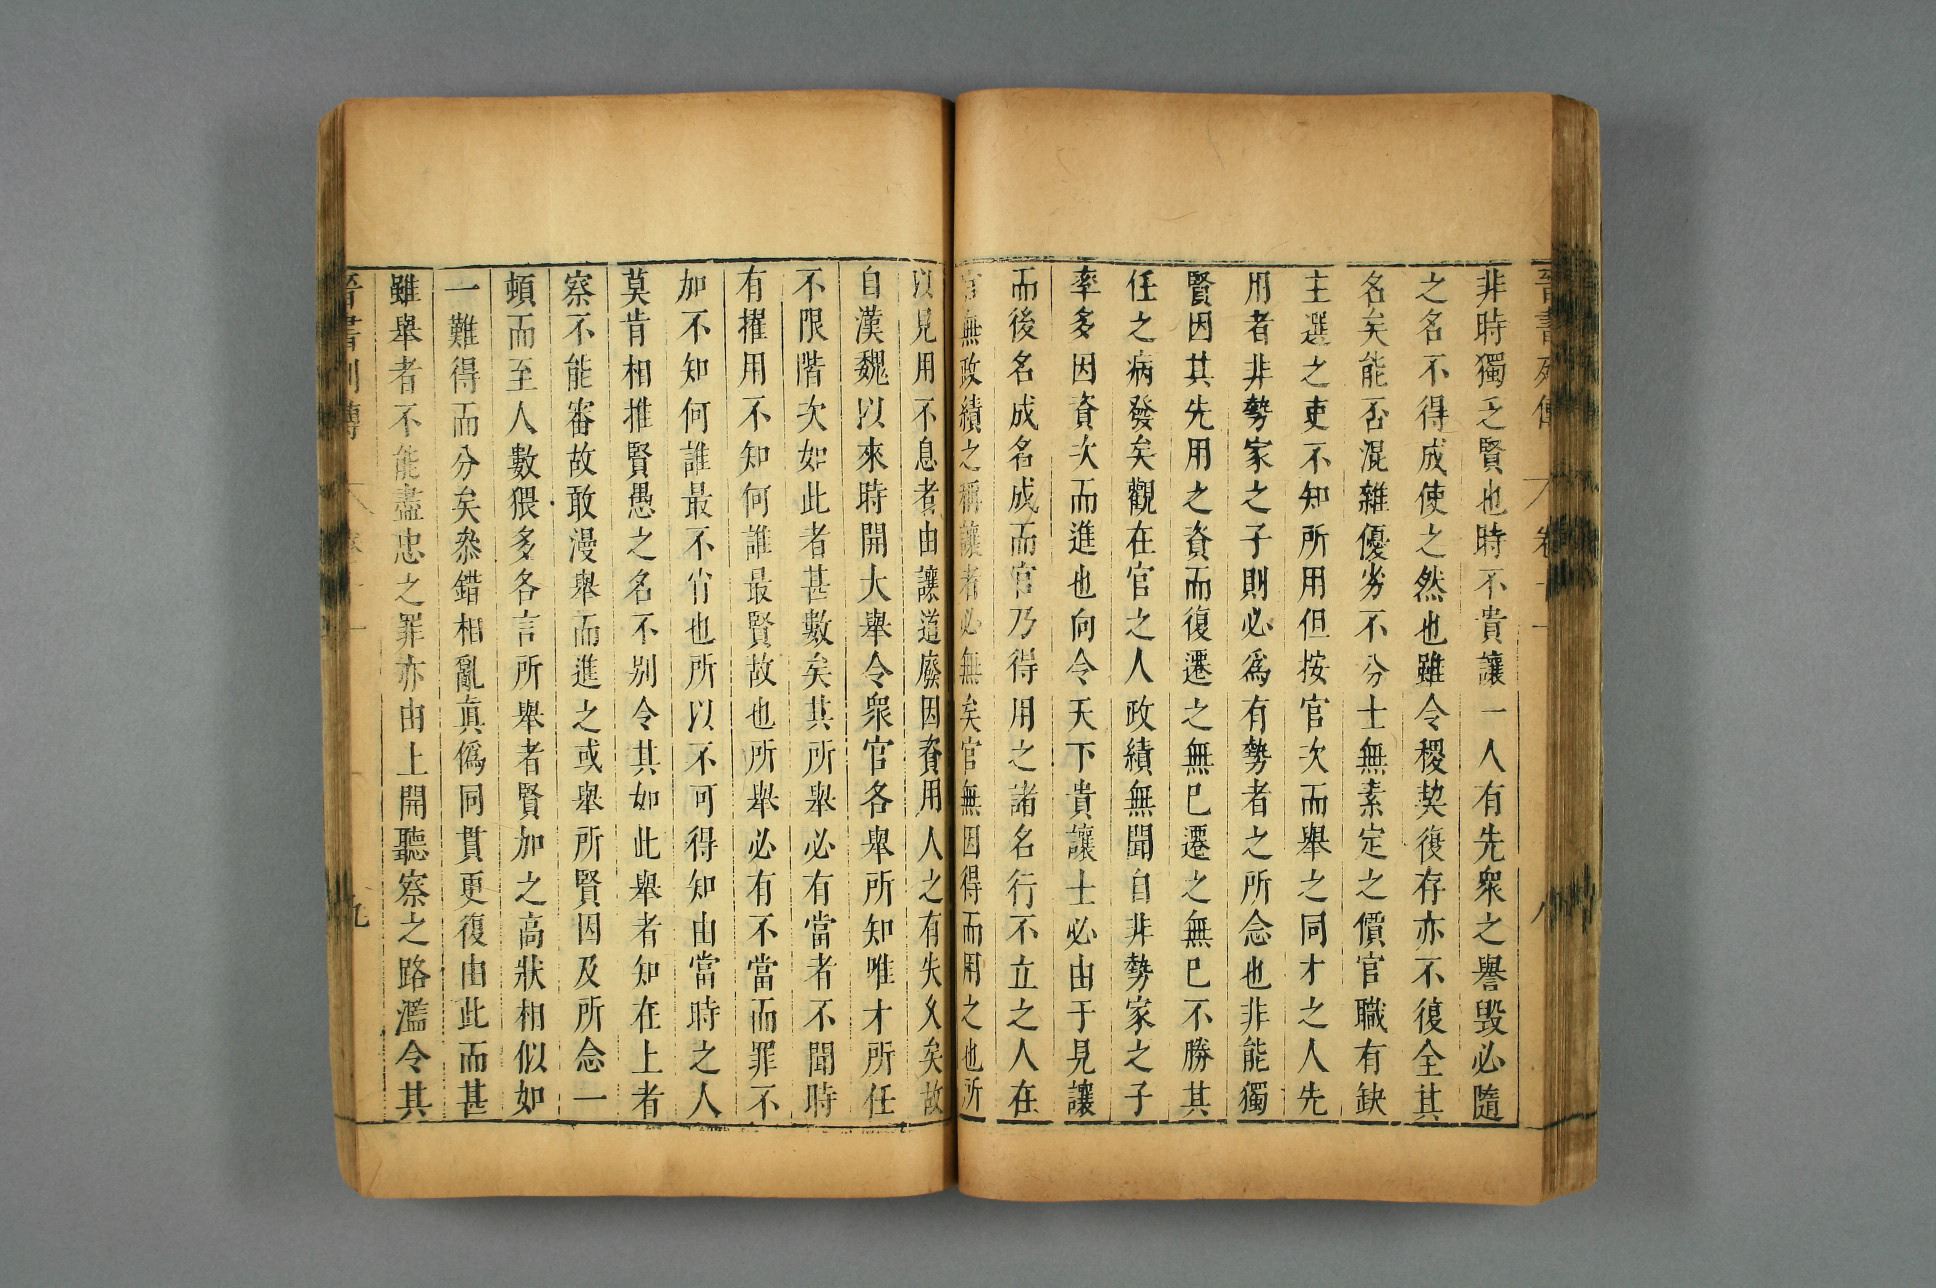 晉書列傳 卷十一 八
非時獨乏賢也時不貴讓一人有先衆之譽毀必隨
之名不得成使之然也雖令稷契復存亦不復全其
名矣能否混雜優劣不分士無素定之價官職有缺
主選之吏不知所用但按官次而舉之同才之人先
用者非勢家之子則必爲有勢者之所念也非能獨
賢因其先用之資而復遷之無已遷之無已不勝其
任之病發矣觀在官之人政績無聞自非勢家之子
率多因資次而進也向令天下貴讓士必由于見讓
而後名成名成而官乃得用之諸名行不立之人在
官無政績之稱讓者必無矣官無因得而用之也所
以見用不息者由讓道廢因資用人之有失久矣故
自漢魏以來時開大舉令衆官各舉所知唯才所任
不限階次如此者甚數矣其所舉必有當者不聞時
有擢用不知何誰最賢故也所舉必有不當而罪不
加不知何誰最不肖也所以不可得知由當時之人
莫肯相推賢愚之名不別令其如此舉者知在上者
察不能審故敢漫舉而進之或舉所賢因及所念一
頓而至人數猥多各言所舉者賢加之高狀相似如
一難得而分矣叅錯相亂真僞同貫更復由此而甚
雖舉者不能盡忠之罪亦由上開聽察之路濫令其
晉書列傳 九